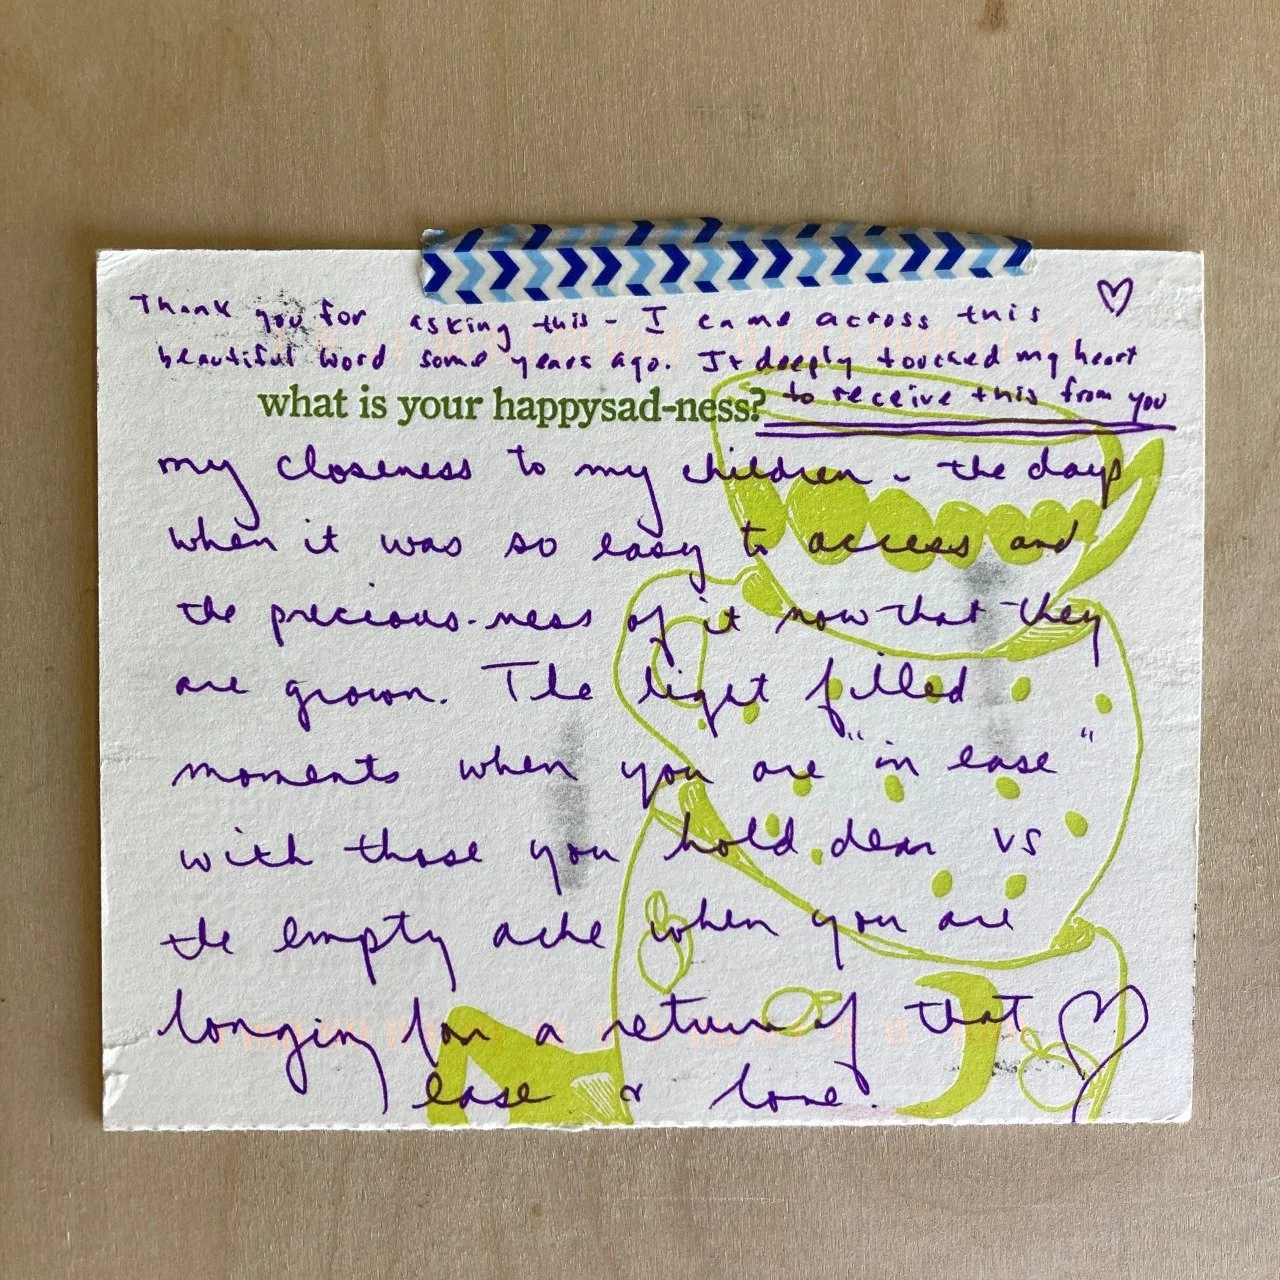 Thank you for asking this - I came across this ♡
beautiful word some years ago. It deeply touched my heart
to receive this from you
what is your happysad-ness?
my closeness to my children - the days
when it was so easy to access and
the precious-ness of it now that they
are grown. The light filled
moments when you are "in ease"
with those you hold dear vs
the empty ache when you are
longing for a return of that ♡
ease & love.